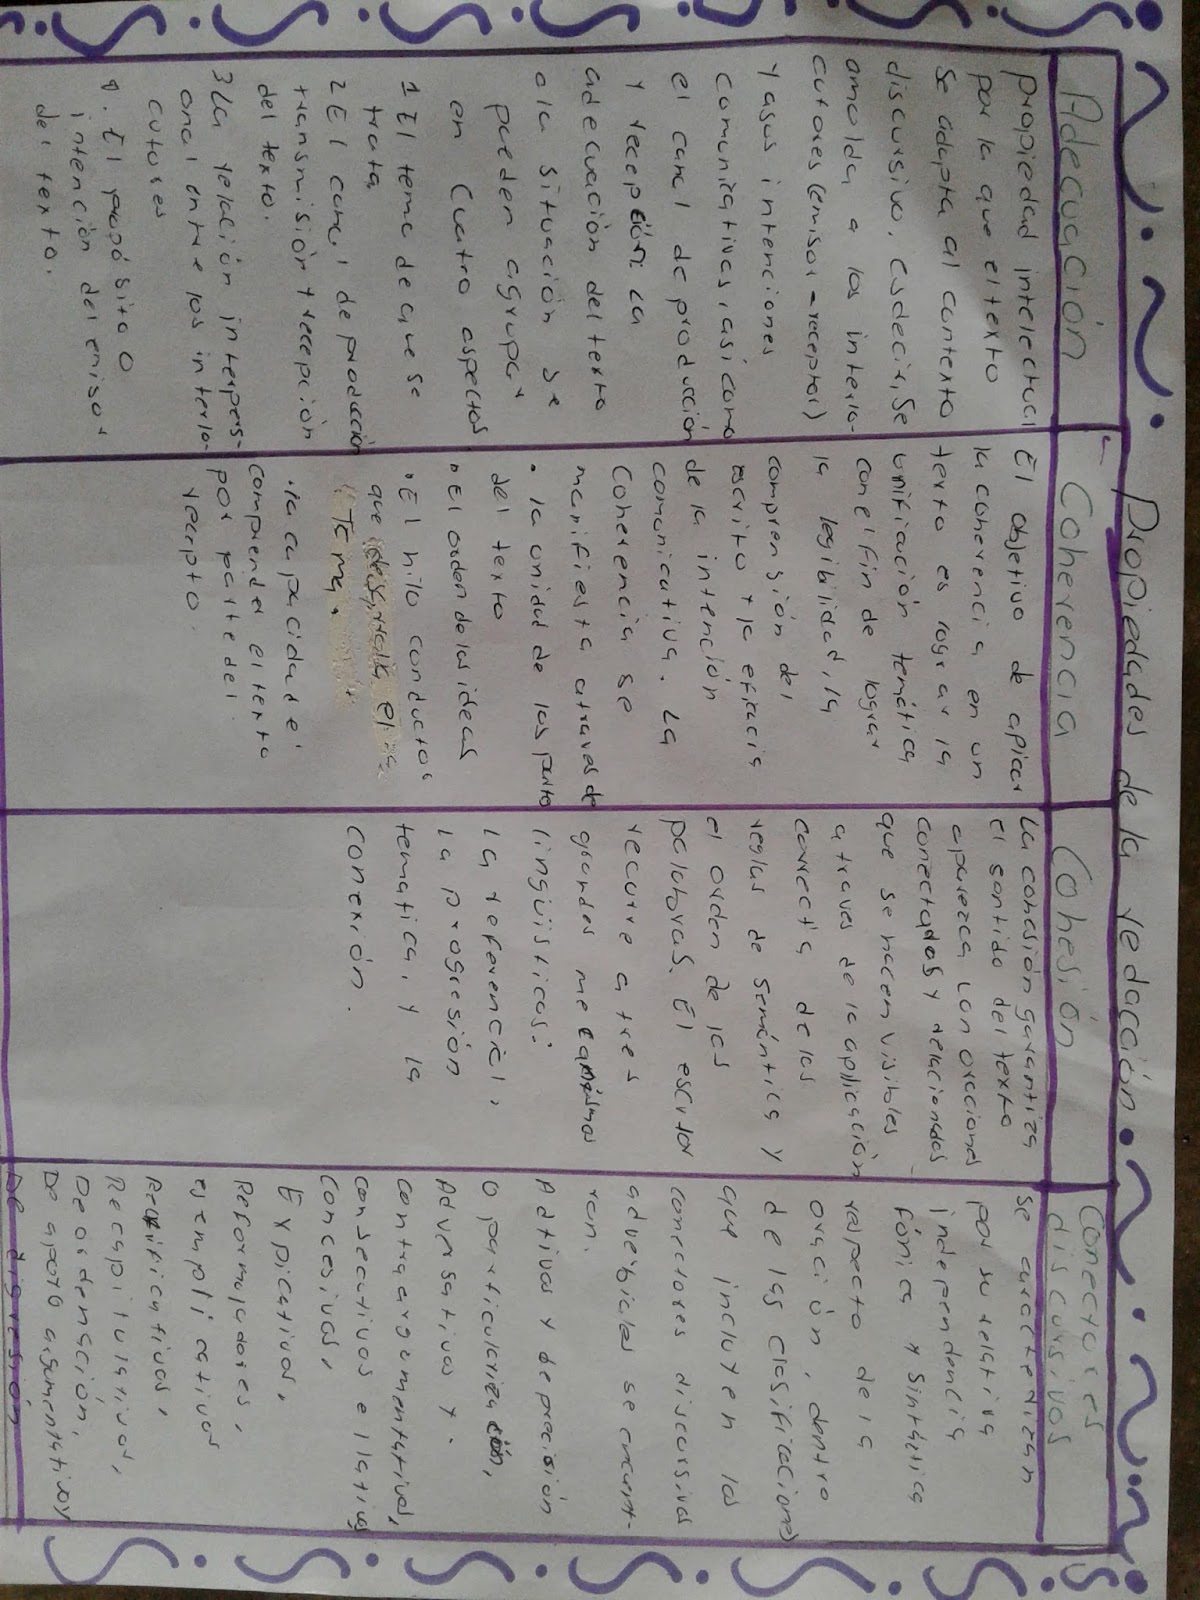 Propiedades de la redacción.
Adecuación
propiedad intelectual
por la que el texto
se adapta al contexto
discursivo, es decir, se
amolda a los interlo-
cutores (emisor-receptor)
y a sus intenciones
comunicativas, así como
el canal de producción
y recepción. La
adecuación del texto
a la situación se
pueden agrupar
en cuatro aspectos
1 El tema de que se
trata,
2 El canal de producción
transmisión y recepción
del texto.
3 La relación interpers-
onal entre los interlo-
cutores
4. El propósito o
intención del emisor
del texto.
Coherencia
El objetivo de aplicar
la coherencia en un
texto es lograr la
unificación temática
con el fin de lograr
la legibilidad, la
comprensión del
escrito y la eficacia
de la intención
comunicativa. La
Coherencia se
manifiesta a traves de
• la unidad de las parte
del texto
• El orden de las ideas
• El hilo conductor
que desarrolla el
Tema.
• la capacidad de
comprender el texto
por parte del
recepto.
Cohesión
La cohesión garantiza
el sentido del texto
aparezca con oraciones
conectadas y relacionadas
que se hacen visibles
a traves de la aplicación
correcta de las
reglas de semántica y
el orden de las
palabras. El escritor
recurre a tres
grandes mecanismos
lingüisticos:
la referencia,
la progresión
tematica, y la
conexión.
Conectores
discursivos
se caracterizan
por su relativa
independencia
fónica y sintáctica
respecto de la
oración, dentro
de las clasificaciones
que incluyen los
conectores discursivos
adverbiales se encuent-
ran.
Aditivos y de precisión
o particularización,
Adversativos y
contraargumentativos,
consecutivos e ilativos
Concesivos,
Expicativos,
Reformuladores,
ejemplificativos
Rectificativos,
Recapitulativos,
De ordenación,
De apoyo argumentativo y
De digresión